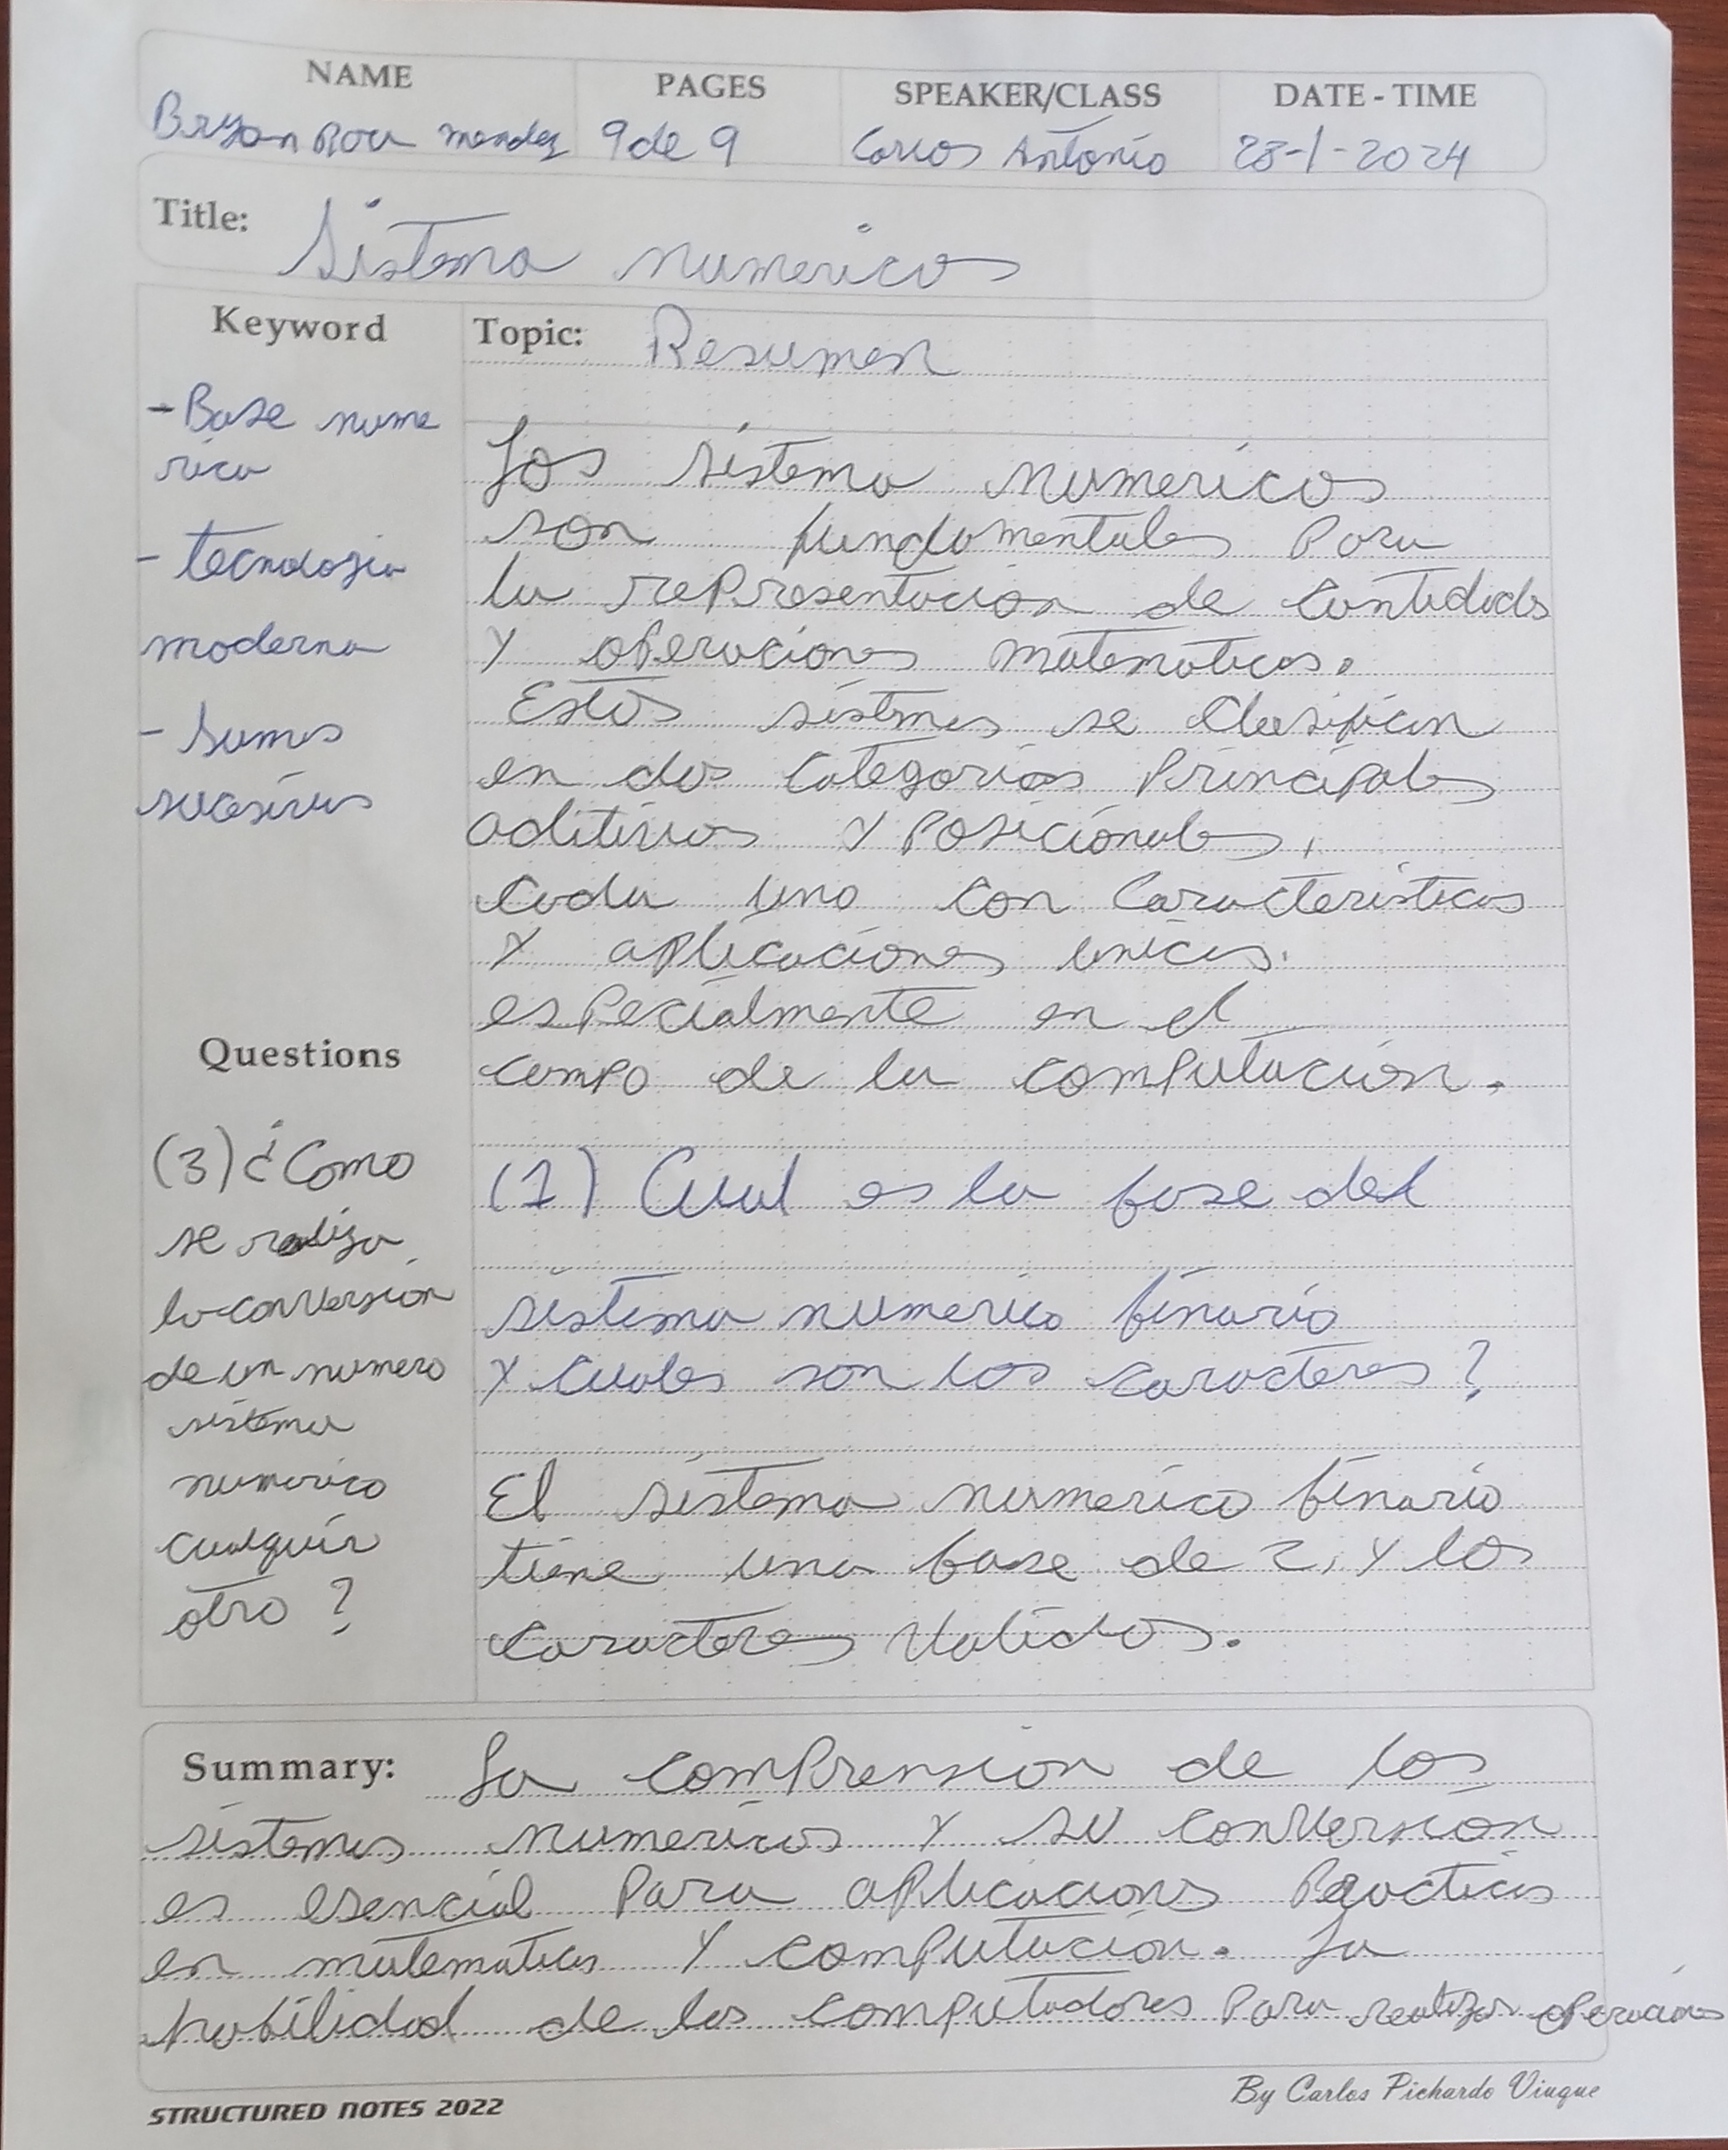 NAME PAGES SPEAKER/CLASS DATE - TIME
Bryan Rou mendez 9 de 9 Carlos Antonio 28-1-2024
Title: Sistema numericos
Keyword
- Base nume
rica
- tecnologia
moderna
- Sumas
sucesivas
Topic: Resumen
Los sistema numericos
son fundamentales para
la representacion de cantidades
y operaciones matematicas.
Estos sistemas se clasifican
en dos categorias principales
aditivos y posicionales,
cada uno con caracteristicas
y aplicaciones unicas.
especialmente en el
campo de la computacion.
(1) Cual es la base del
sistema numerico binario
y cuales son los caracteres ?
El sistema numerico binario
tiene una base de 2, y los
caracteres validos.
Questions
(3) ¿Como
se realiza
la conversion
de un numero
sistema
numerico
cualquir
otro ?
Summary: La comprension de los
sistemas numericos y su conversion
es esencial para aplicacions practicas
en matematicas y computacion. La
habilidad de las computadores para realizar operaciones
STRUCTURED NOTES 2022
By Carlos Pichardo Viuque